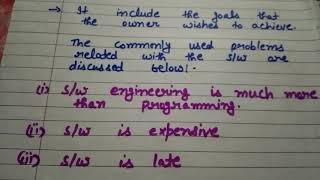 → It include the goals that
the owner wishes to achieve.
The commonly used problems
related with the s/w are
discussed below:
(i) s/w engineering is much more
than programming.
(ii) s/w is expensive
(iii) s/w is late